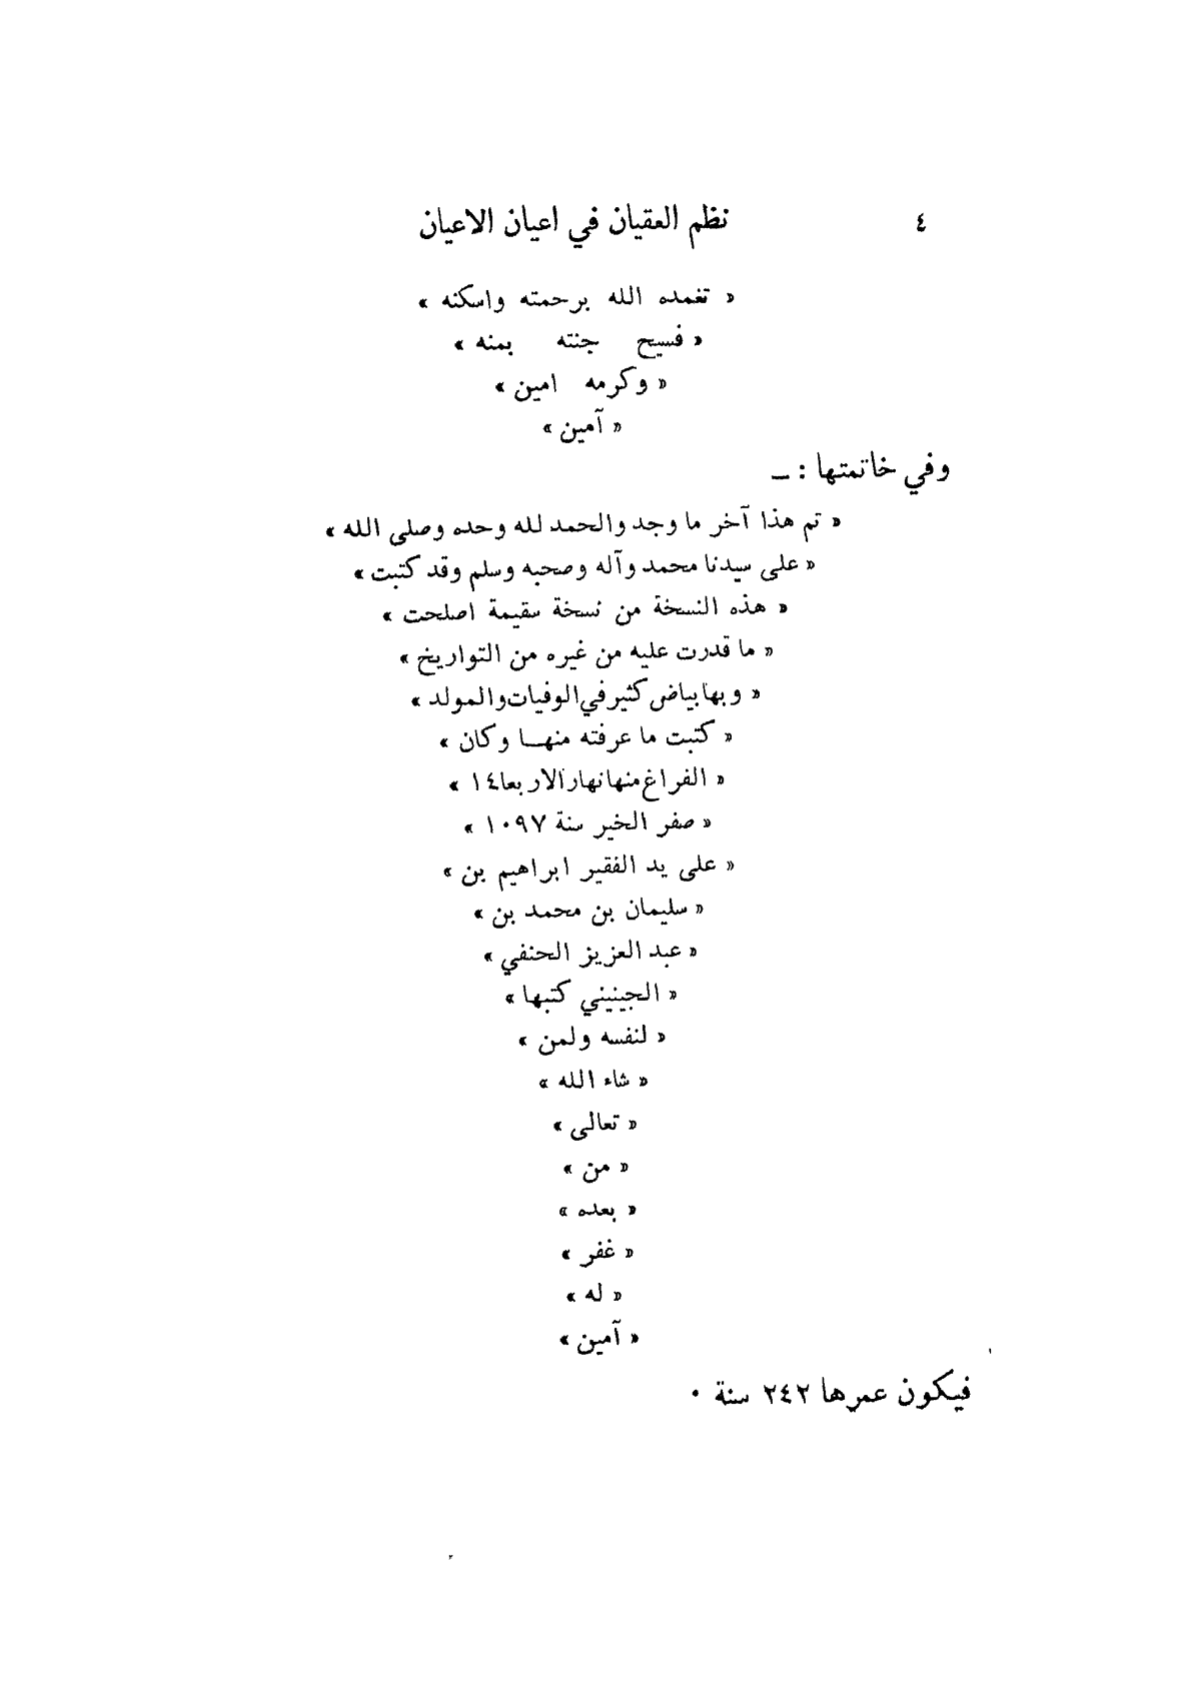 ٤ نظم العقيان في اعيان الاعيان
« تغمده الله برحمته واسكنه »
« فسيح جنته بمنه »
« وكرمه امين »
« آمين »
وفي خاتمتها : ــ
« تم هذا آخر ما وجد والحمد لله وحده وصلى الله »
« على سيدنا محمد وآله وصحبه وسلم وقد كتبت »
« هذه النسخة من نسخة سقيمة اصلحت »
« ما قدرت عليه من غيره من التواريخ »
« وبها بياض كثير في الوفيات والمولد »
« كتبت ما عرفته منهـا وكان »
« الفراغ منها نهار الاربعا ١٤ »
« صفر الخير سنة ١٠٩٧ »
« على يد الفقير ابراهيم بن »
« سليمان بن محمد بن »
« عبد العزيز الحنفي »
« الجينيني كتبها »
« لنفسه ولمن »
« شاء الله »
« تعالى »
« من »
« بعده »
« غفر »
« له »
« آمين »
فيكون عمرها ٢٤٢ سنة ٠